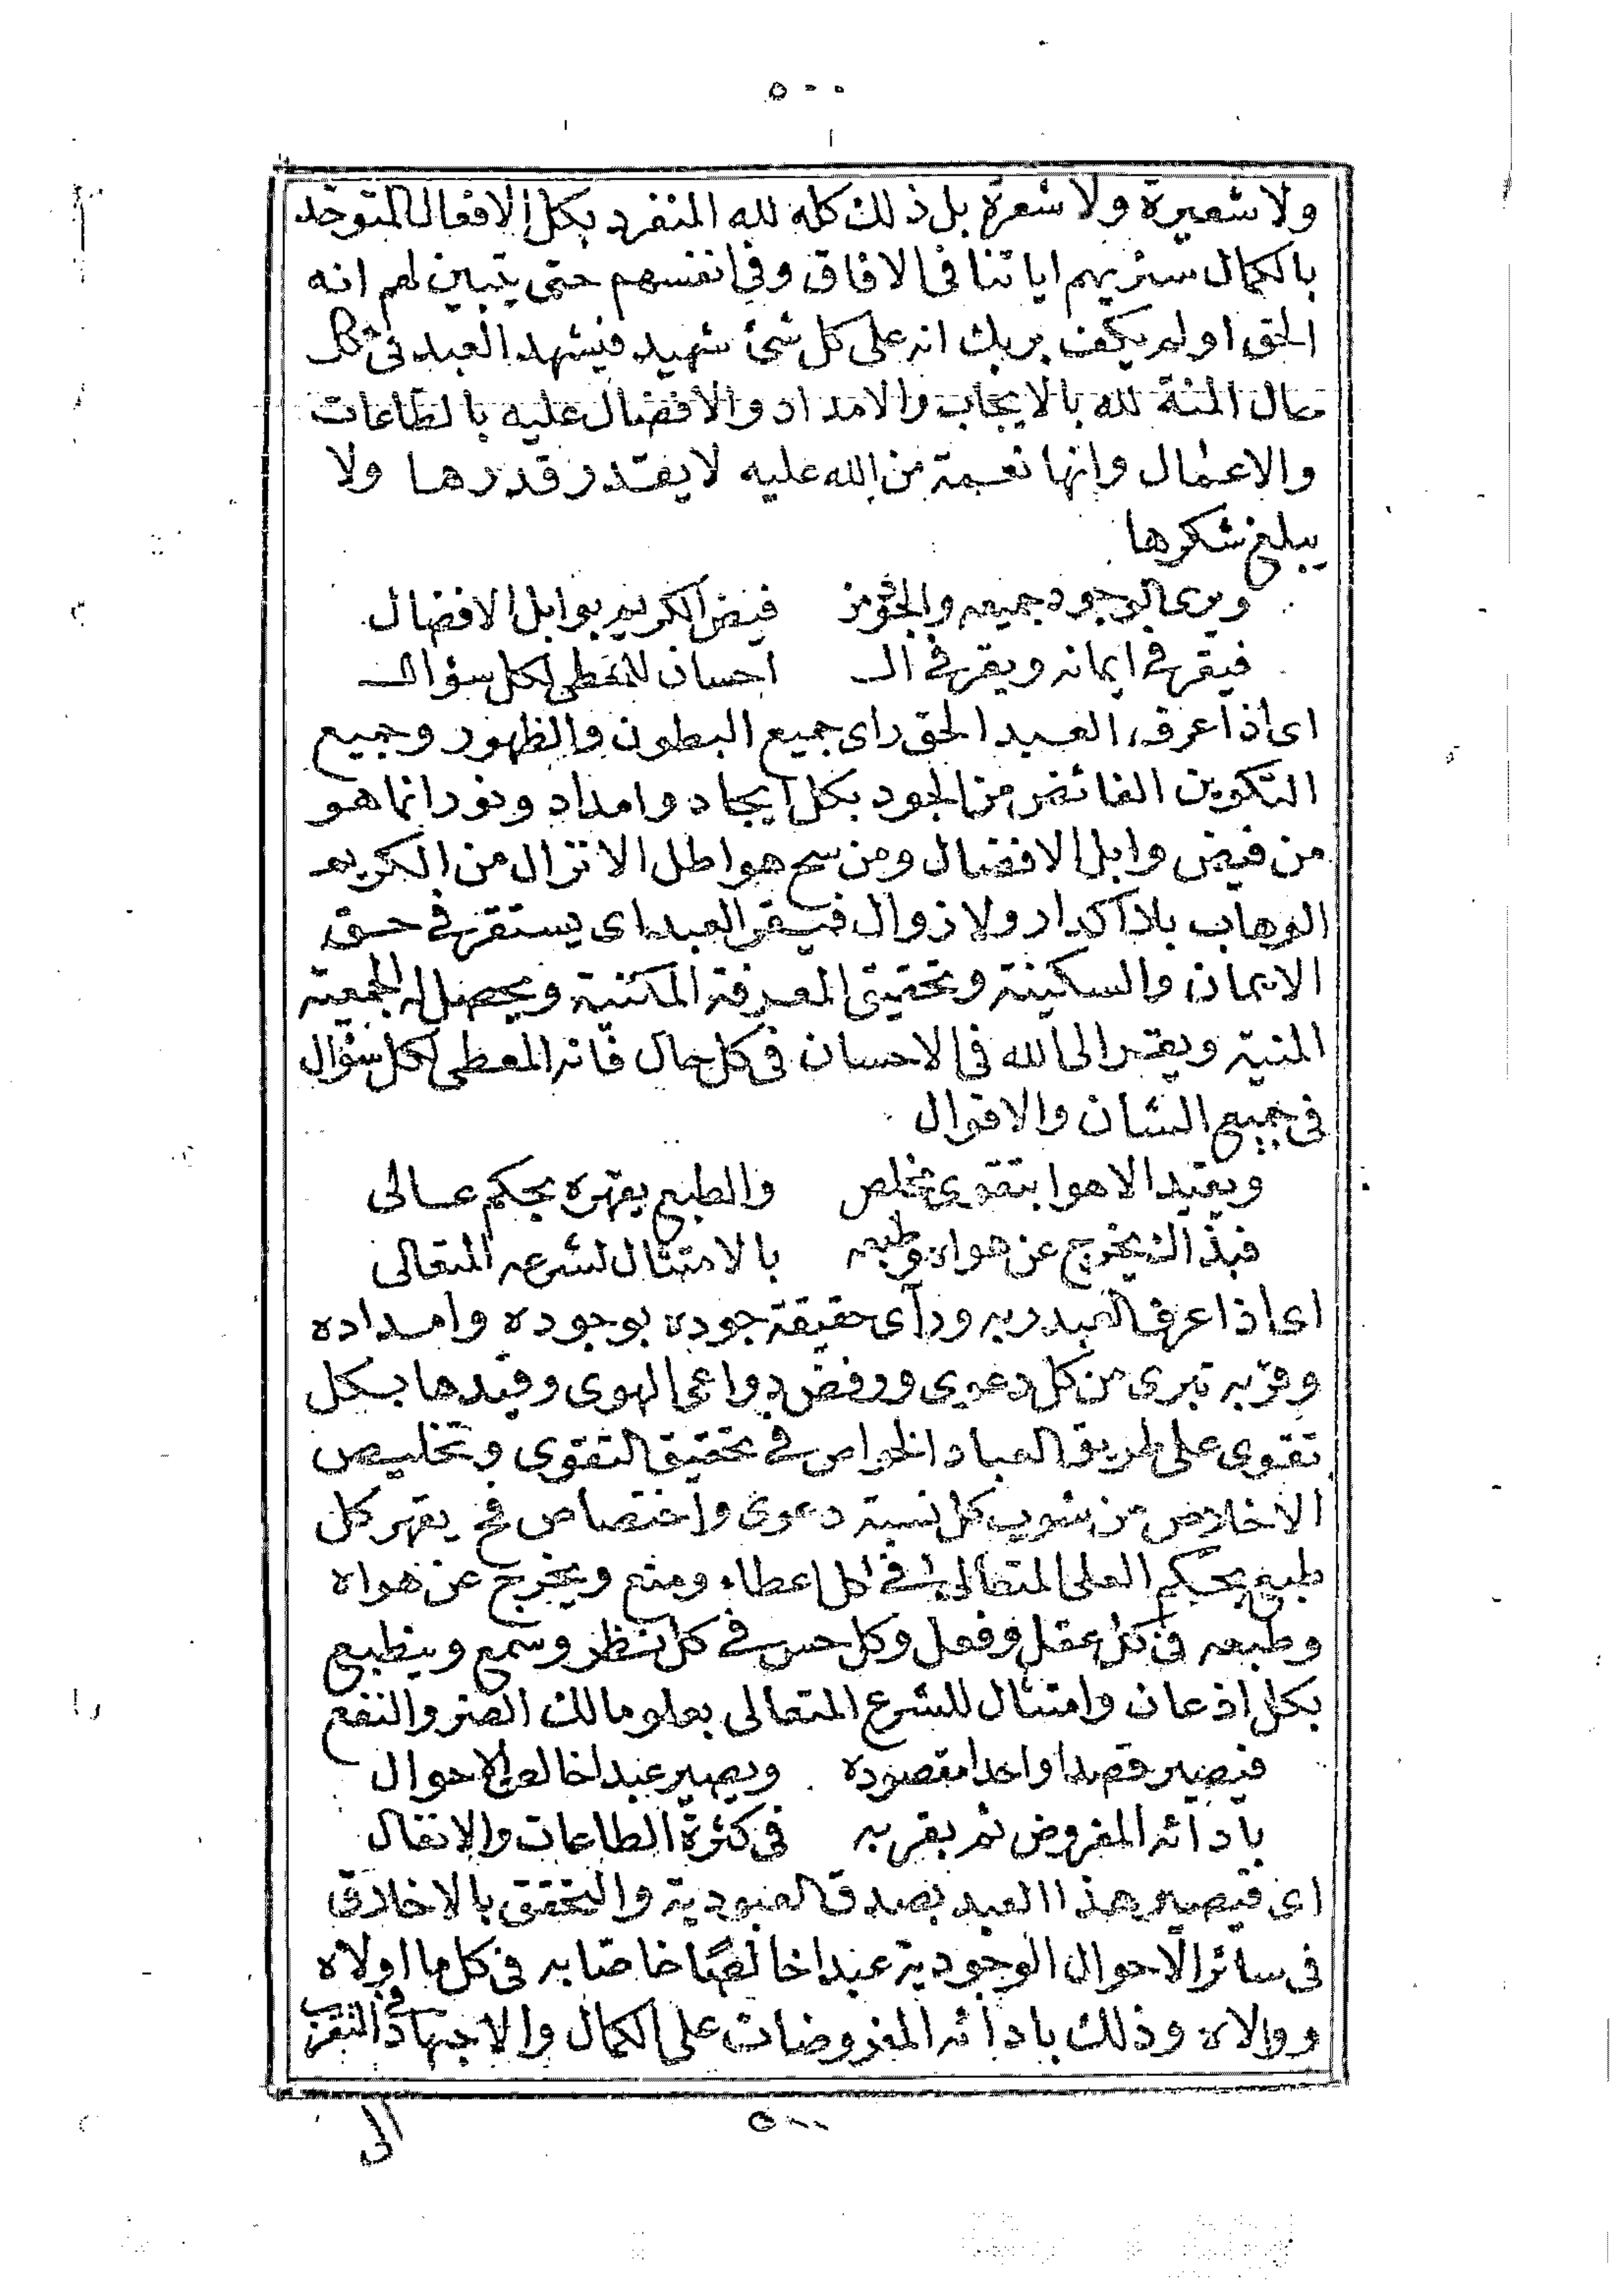 ٥٠٠
ولا شعيرة ولا شعرة بل ذلك كله لله المنفرد بكل الافعال المتوحد
بالكمال سنريهم اياتنا فى الافاق وفى انفسهم حتى يتبين لهم انه
الحق اولم يكف بربك انه على كل شئ شهيد فيشهد العبد فى كل
حال المنة لله بالايجاب والامداد والافضال عليه بالطاعات
والاعمال وانها نعمة من الله عليه لا يقتدر قدرها ولا
يبلغ شكرها
ويرى الوجود جميعه والجود من فيض الكريم بوابل الافضال
فيقر فى ايمانه ويقر فى الـ احسان للمعطى لكل سؤال
اى اذا عرف العبد الحق راى جميع البطون والظهور وجميع
التكوين الفائض من الجود بكل ايجاد وامداد ونور انما هو
من فيض وابل الافضال ومن سح هواطل الانزال من الكريم
الوهاب بلا اكدار ولا زوال فيقر العبد اى يستقر فى حق
الايمان والسكينة وتحقيق المعرفة المكنية ويحصل له الجمعية
المنية ويقر الى الله فى الاحسان فى كل حال فانه المعطى لكل سؤال
فى جميع الشان والاقوال
ويقيد الاهوا بتقوى مخلص والطبع يقهره بحكم عالى
فبذاك يخرج عن هواه وطبعه بالامتثال لشرعه المتعالى
اى اذا عرف العبد ربه ورآى حقيقة جوده بوجوده وامداده
وقربه تبرى من كل دعوى ورفض دواعى الهوى وقيدها بكل
تقوى على طريق العباد الخواص فى تحقيق التقوى وتخليص
الاخلاص من شوب كل نسبة دعوى واختصاص فح يقهر كل
طبع بحكم العلى المتعالى فى كل اعطاء ومنع ويخرج عن هواه
وطبعه فى كل عقل وفعل وكل حس فى كل نظر وسمع وينطبع
بكل اذعان وامتثال للشرع المتعالى بعلو مالك الضر والنفع
فيصير قصدا واحدا مقصوده ويصير عبدا خالص الاحوال
بادائه المفروض ثم بقربه فى كثرة الطاعات والانفال
اى فيصير هذا العبد بصدق العبودية والتحقق بالاخلاق
فى سائر الاحوال الوجودية عبدا خالصًا خاصا به فى كل ما اولاه
ووالاه وذلك بادائه المفروضات على الكمال والاجتهاد فى التقرب
الى
٥٠٠